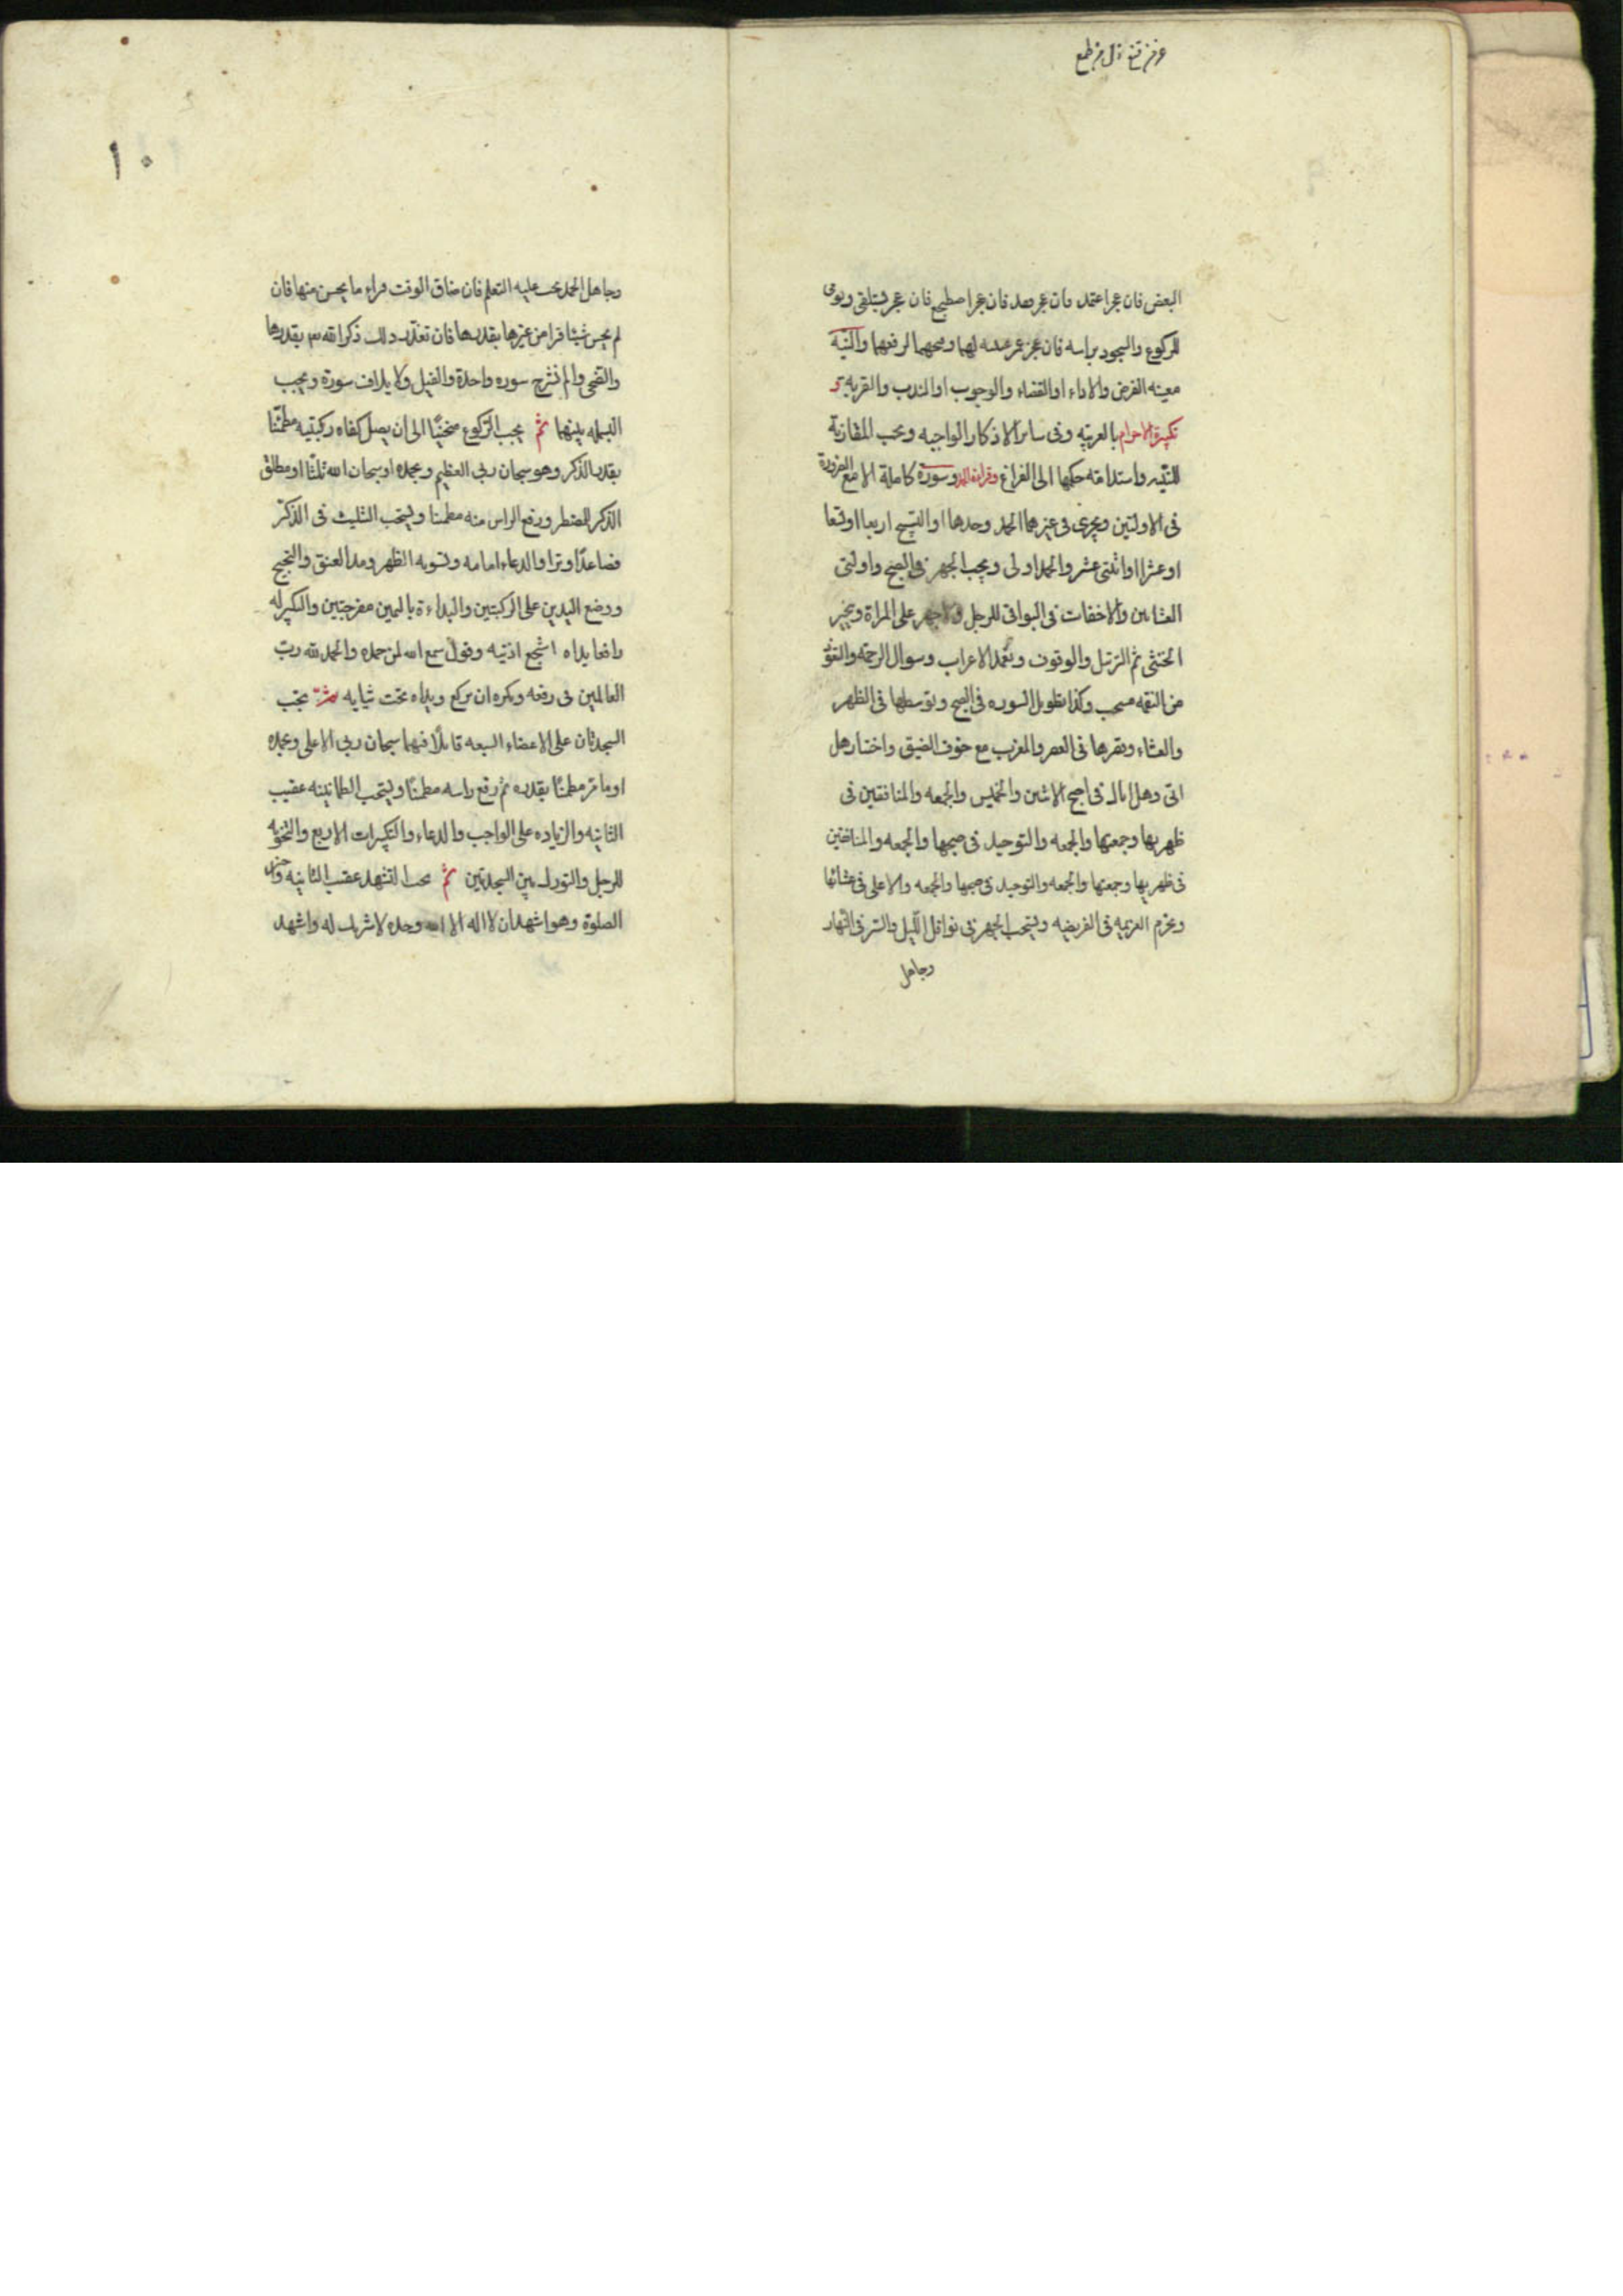 عز من قنع ذل من طمع
البعض فان عجز اعتمد فان عجز قعد فان عجز اضطجع فان عجز استلقى ويومی
للركوع والسجود براسه فان عجز غمض عينيه لهما وفتحهما لرفعهما والنية
معينه الفرض والاداء او القضاء والوجوب او الندب والقربه و
تكبيرة الاحرام بالعربيه وفى ساير الاذكار الواجبه ويجب المقارنة
للنيه واستدامته حكمها الى الفراغ وقراءة الحمد وسورة كاملة الا مع الضرورة
فى الاولتين ويجزى فى غيرهما الحمد وحدها او التسبيح اربعا او تسعا
او عشرا او اثنتى عشر والحمد اولى ويجب الجهر فى الصبح واولتى
العشاءين والاخفات فى البواقى للرجل ولا جهر على المراة ويخير
الخنثى ثم الترتيل والوقوف وتعمد الاعراب وسوال الرحمة والتعوذ
من النقمه مستحب وكذا تطويل السوره فى الصبح وتوسطها فى الظهر
والعشاء وقصرها فى العصر والمغرب مع خوف الضيق واختار هل
اتى وهل اتاك فى صبح الاثنين والخميس والجمعه والمنافقين فى
ظهريها وجمعتها والجمعه والتوحيد فى صبحها والجمعه والمنافقين
فى ظهريها وجمعتها والجمعه والتوحيد فى صبحها والجمعه والاعلى فى عشائها
وتحرم العزيمه فى الفريضه ويستحب الجهر فى نوافل الليل والسر فى النهار
وجاهل
١٠
وجاهل الحمد يجب عليه التعلم فان ضاق الوقت قراء ما يحسن منها فان
لم يحسن شيئا قرا من غيرها بقدرها فان تعذر ذلك ذكر الله بقدرها
والضحى والم نشرح سوره واحدة والفيل ولايلاف سورة ويجب
البسمله بينهما ثم يجب الركوع منحنيا الى ان يصل كفاه ركبتيه مطمئنا
بقدر الذكر وهو سبحان ربى العظيم وبحمده او سبحان الله ثلثا او مطلق
الذكر للمضطر ورفع الراس منه مطمئنا ويستحب التثليث فى الذكر
فصاعدا وترا والدعاء امامه وتسويه الظهر ومد العنق والتجنيح
ووضع اليدين على الركبتين والبداءة باليمين مفرجتين والتكبير له
رافعا يداه شحمتى اذنيه وقول سمع الله لمن حمده والحمد لله رب
العالمين فى رفعه ويكره ان يركع ويداه تحت ثيابه ثم تجب
السجدتان على الاعضاء السبعه قائلا فيهما سبحان ربى الاعلى وبحمده
او ما مر مطمئنا بقدره ثم رفع راسه مطمئنا ويستحب الطمانينه عقيب
الثانيه والزياده على الواجب والدعاء والتكبيرات الاربع والتخويه
للرجل والتورك بين السجدتين ثم يجب التشهد عقيب الثانيه واخر
الصلوة وهو اشهد ان لا اله الا الله وحده لا شريك له واشهد